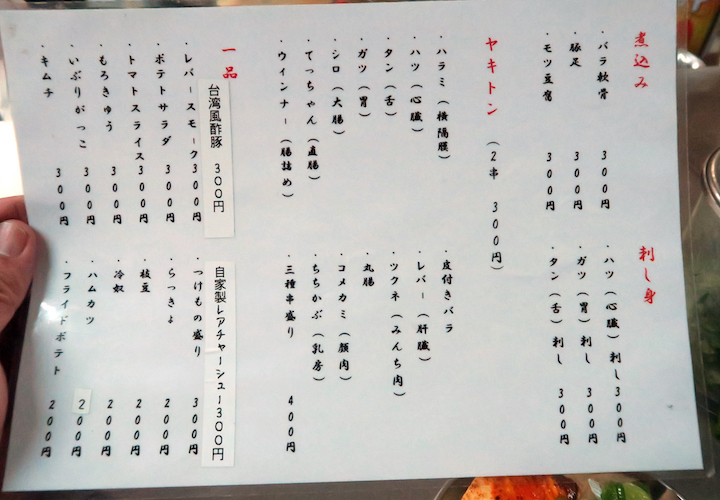 煮込み
・バラ軟骨 300円
・豚足 300円
・モツ豆腐 300円
刺し身
・ハツ(心臓)刺し 300円
・ガツ(胃)刺し 300円
・タン(舌)刺し 300円
ヤキトン (2串 300円)
・ハラミ(横隔膜)
・ハツ(心臓)
・タン(舌)
・ガツ(胃)
・シロ(大腸)
・てっちゃん(直腸)
・ウインナー(腸詰め)
・皮付きバラ
・レバー(肝臓)
・ツクネ(みんち肉)
・丸腸
・コメカミ(顔肉)
・ちちかぶ(乳房)
・三種串盛り 400円
一品
台湾風酢豚 300円
・レバースモーク 300円
・ポテトサラダ 300円
・トマトスライス 300円
・もろきゅう 300円
・いぶりがっこ 300円
・キムチ 300円
自家製レアチャーシュー300円
・つけもの盛り 300円
・らっきょ 200円
・枝豆 200円
・冷奴 200円
・ハムカツ 200円
・フライドポテト 200円